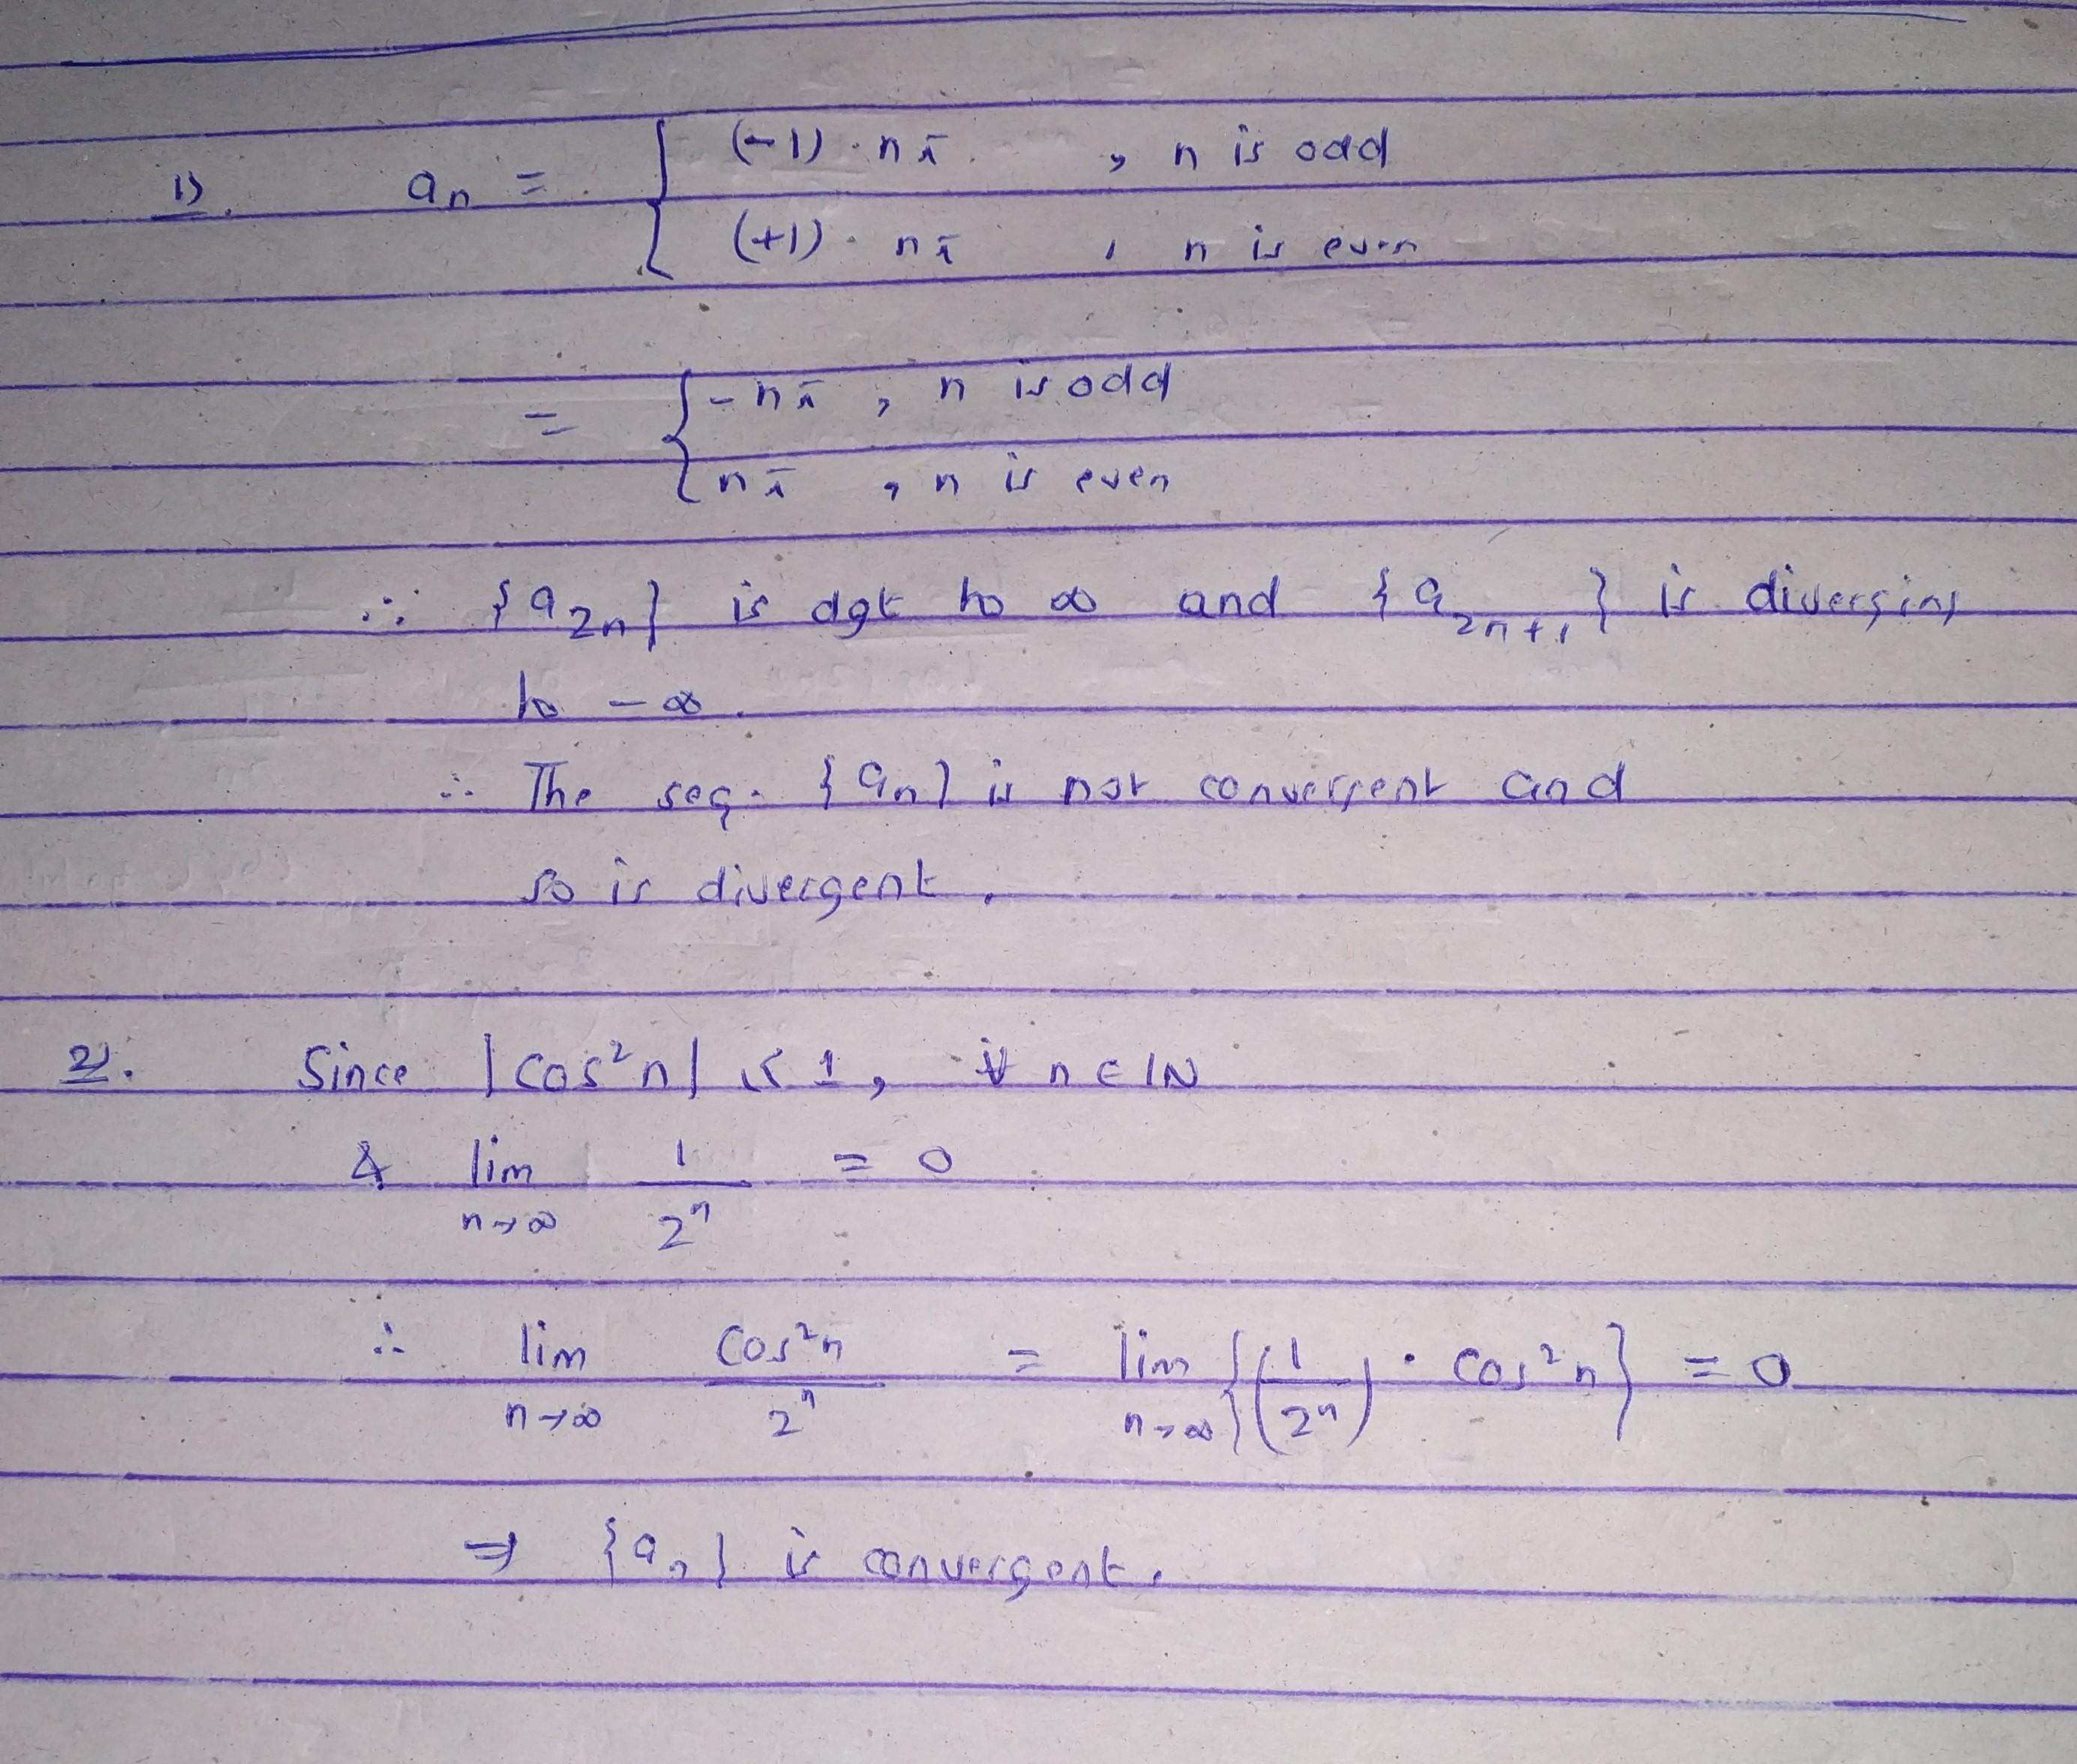 1) an = { (-1) · nπ , n is odd
(+1) · nπ , n is even
= { -nπ , n is odd
nπ , n is even
∴ {a2n} is dgt to ∞ and {a2n+1} is diverging
to -∞.
∴ The seq. {an} is not convergent and
so is divergent.
2). Since |cos²n| ≤ 1, ∀ n ∈ IN
& lim n→∞ 1/2ⁿ = 0
∴ lim n→∞ cos²n/2ⁿ = lim n→∞ {(1/2ⁿ) · cos²n} = 0
⇒ {an} is convergent.